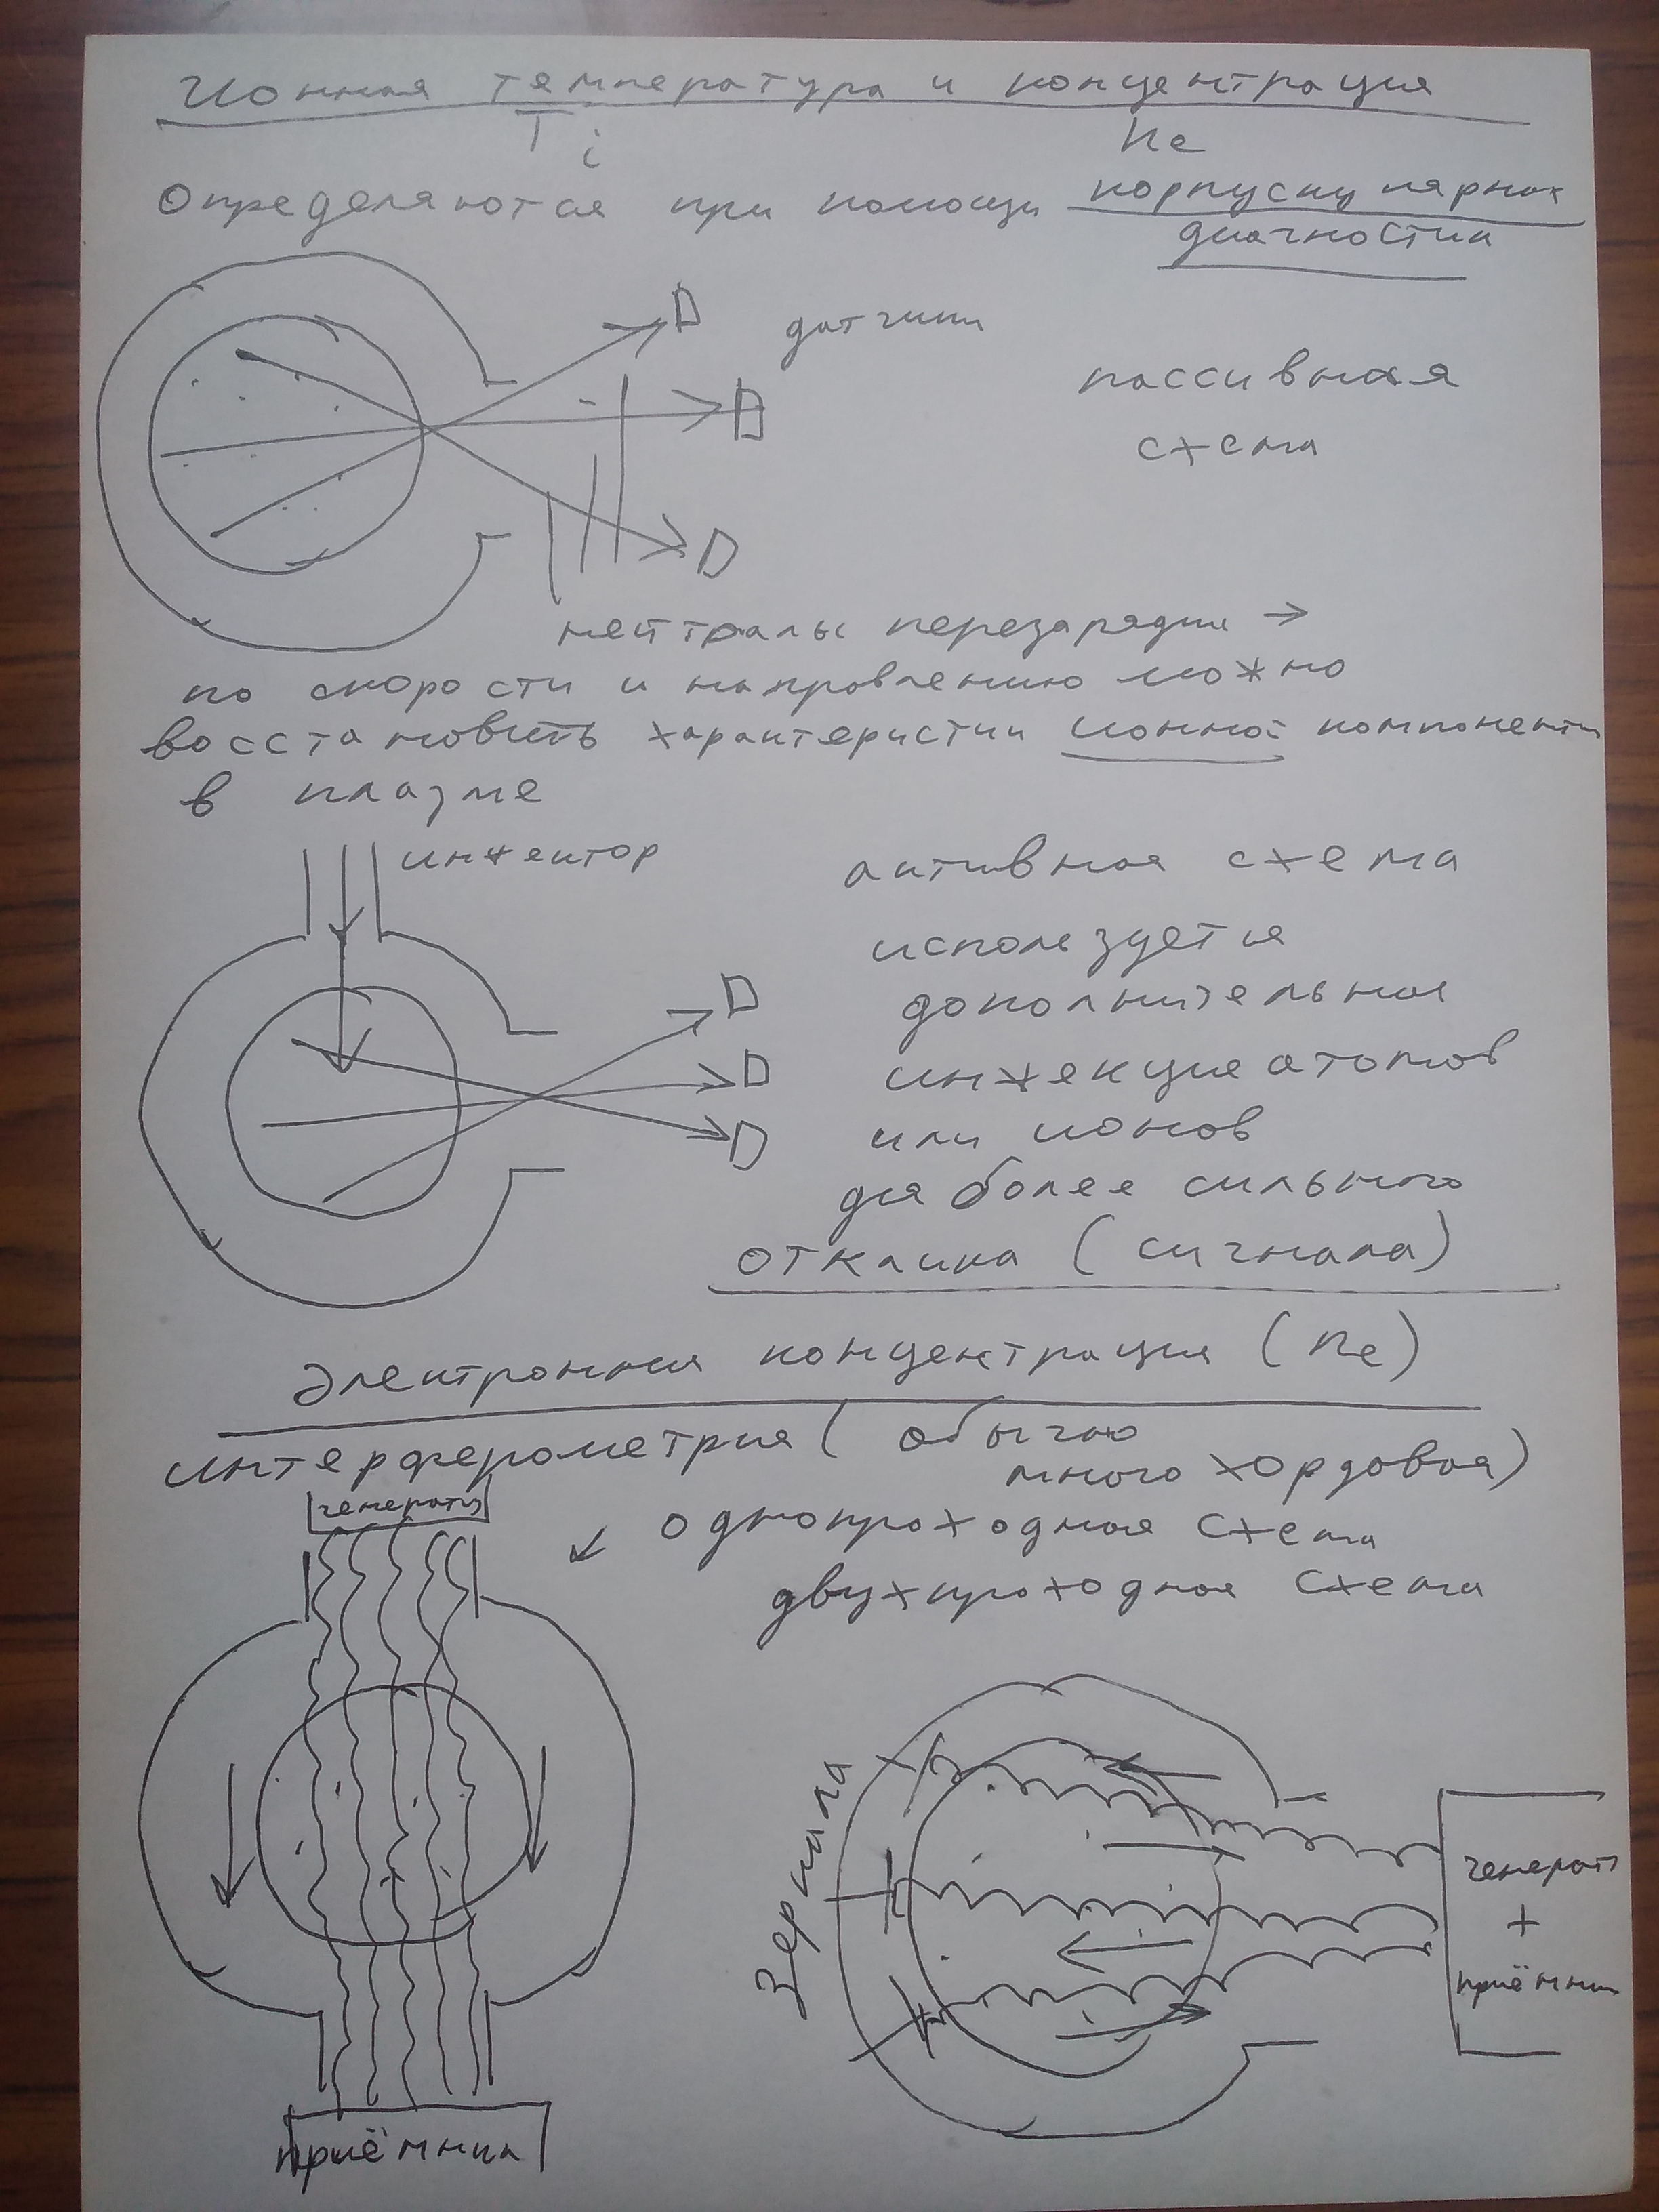 Ионная температура и концентрация
Ti ne
Определяются при помощи корпускулярных
диагностик
датчики
пассивная
схема
нейтралы перезарядки →
по скорости и направлению можно
восстановить характеристики ионной компоненты
в плазме
инжектор
активная схема
используется
дополнительная
инжекция атомов
или ионов
для более сильного
отклика (сигнала)
Электронная концентрация (ne)
интерферометрия (обычно
многохордовая)
генератор
↙ однопроходная схема
двухпроходная схема
зеркала
генератор
+
приёмник
приёмник